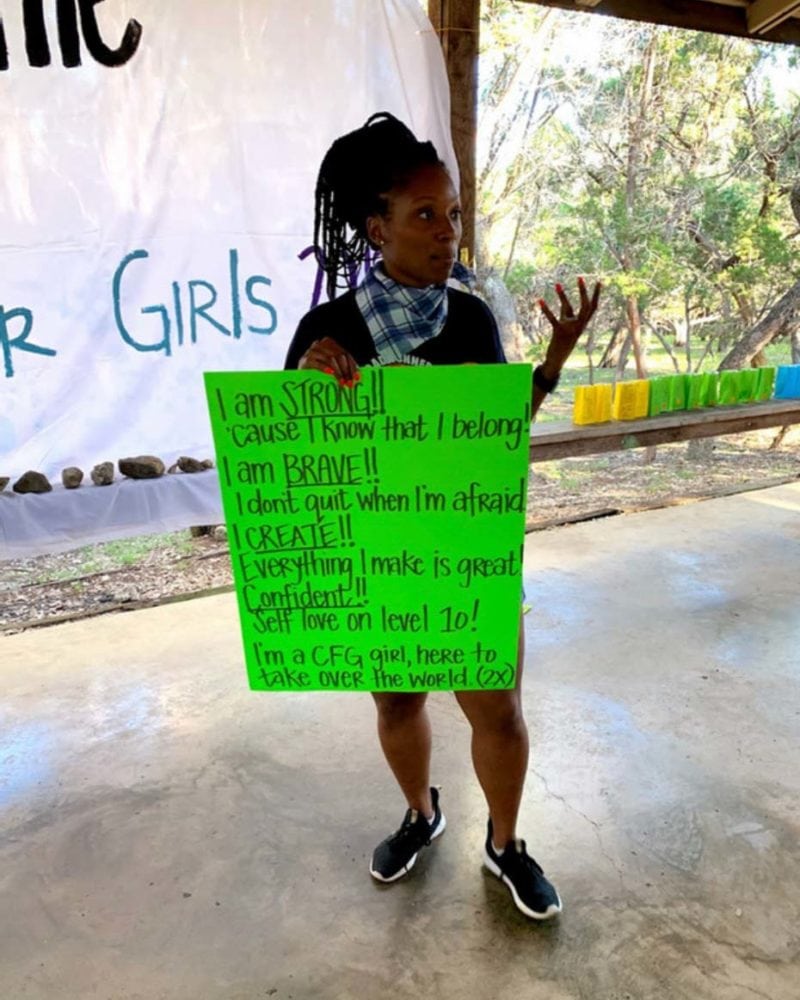 GIRLS
I am STRONG!!
'cause I know that I belong!
I am BRAVE!!
I don't quit when I'm afraid
I CREATE!!
Everything I make is great!
Confident!!
Self love on level 10!
I'm a CFG girl, here to
take over the world. (2x)